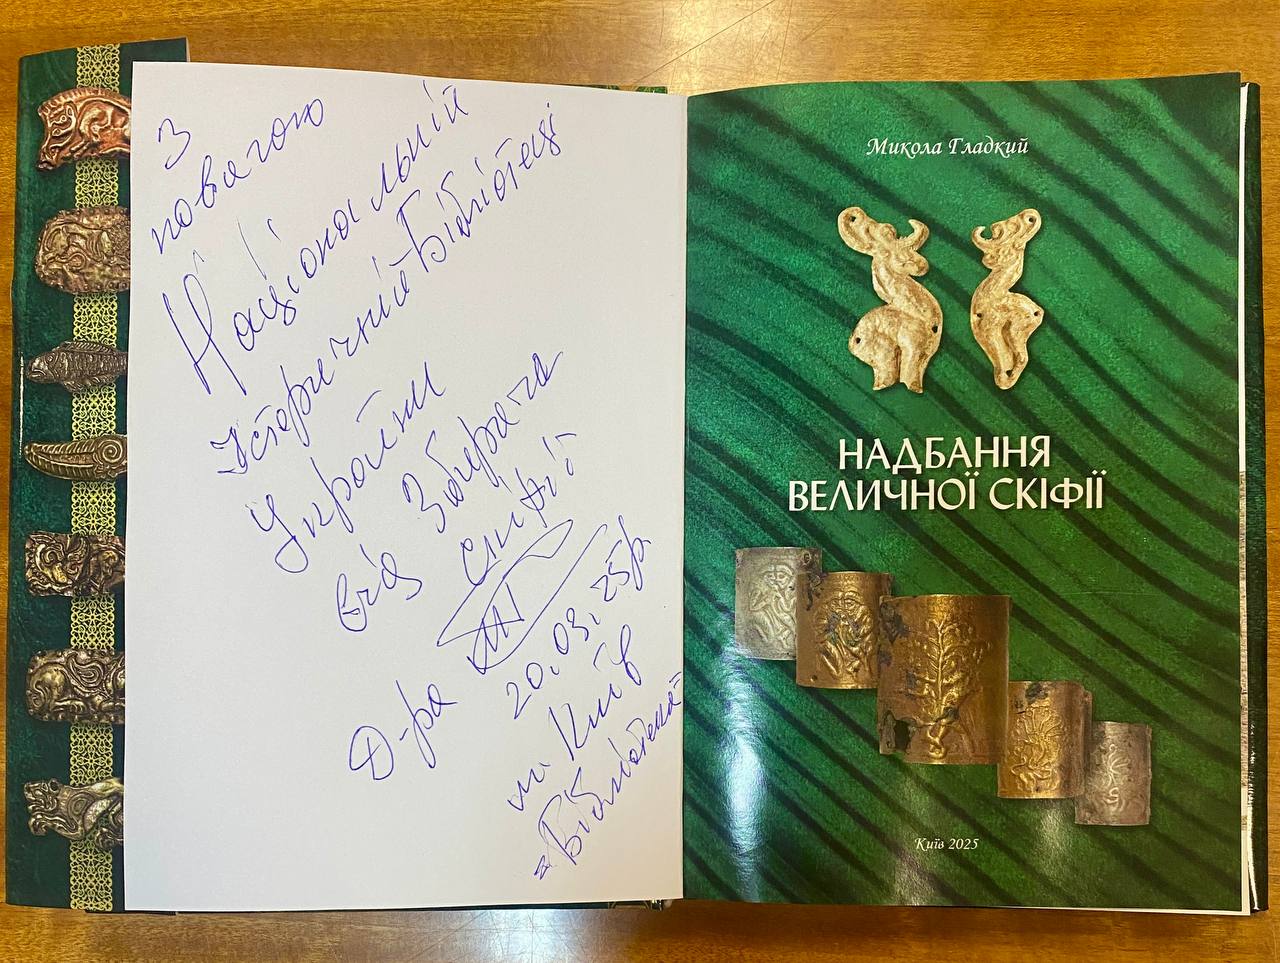 З
повагою
Національній
Історичній Бібліотеці
України
від Зберігача
Скіфії
Д-ра
20.03.25р.
м. Київ
Бібліотека
Микола Гладкий
НАДБАННЯ
ВЕЛИЧНОЇ СКІФІЇ
Київ 2025